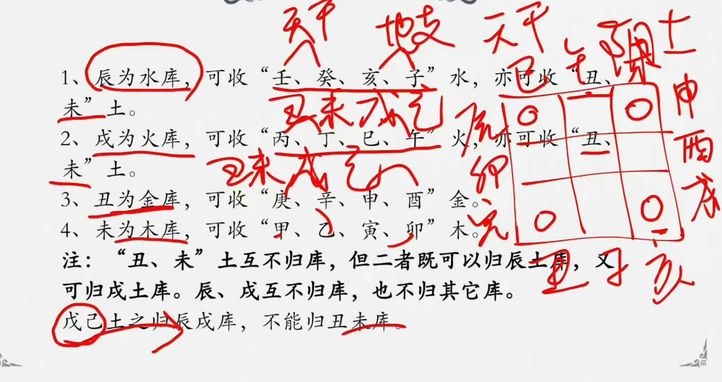 天干 地支 天干
1、辰为水库，可收“壬、癸、亥、子”水，亦可收“丑、
未”土。
丑未戌辰
2、戌为火库，可收“丙、丁、巳、午”火，亦可收“丑、
未”土。
丑未戌辰
3、丑为金库，可收“庚、辛、申、酉”金。
4、未为木库，可收“甲、乙、寅、卯”木。
注：“丑、未”土互不归库，但二者既可以归辰土库，又
可归戌土库。辰、戌互不归库，也不归其它库。
戊己土之归辰戌库，不能归丑未库。
巳 午
土
申
酉
戌
辰
卯
丑 子 亥